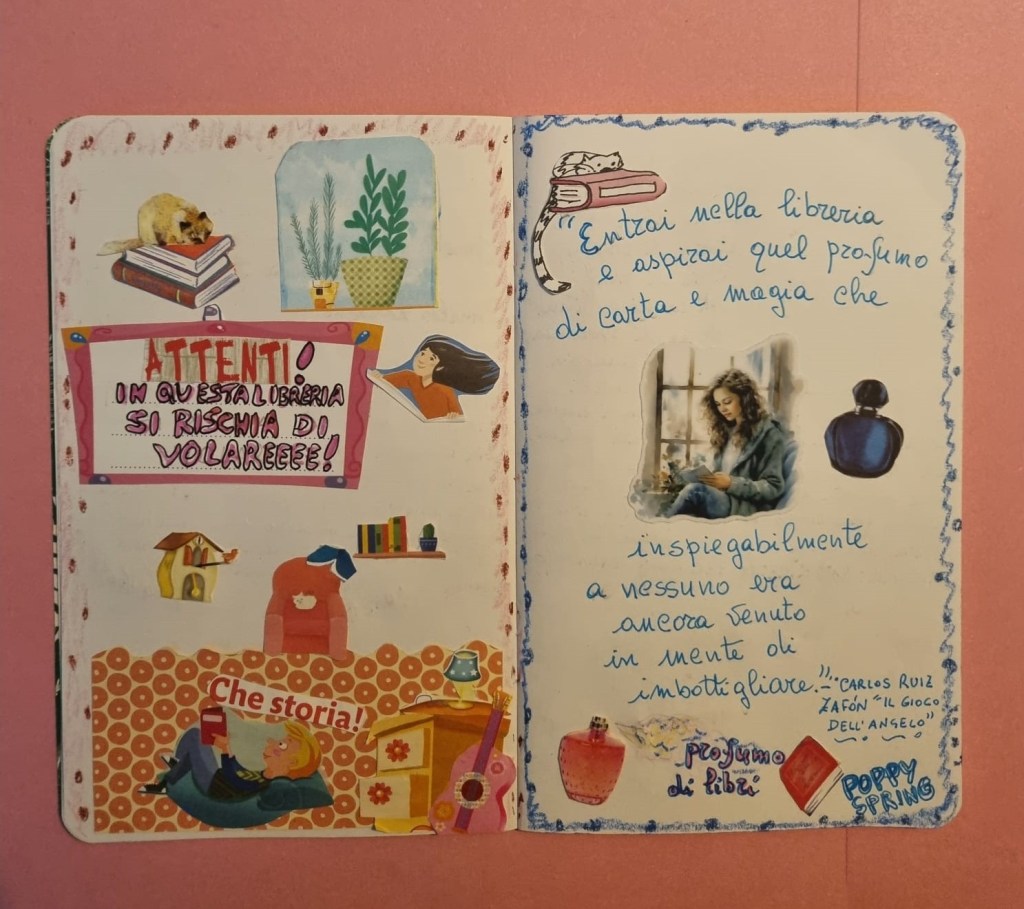 ATTENTI!
IN QUESTA LIBRERIA
SI RISCHIA DI
VOLAREEEE!
Che storia!
"Entrai nella libreria
e aspirai quel profumo
di carta e magia che
inspiegabilmente
a nessuno era
ancora venuto
in mente di
imbottigliare."- CARLOS RUIZ
ZAFÓN "IL GIOCO
DELL'ANGELO"
profumo
di libri
POPPY
SPRING